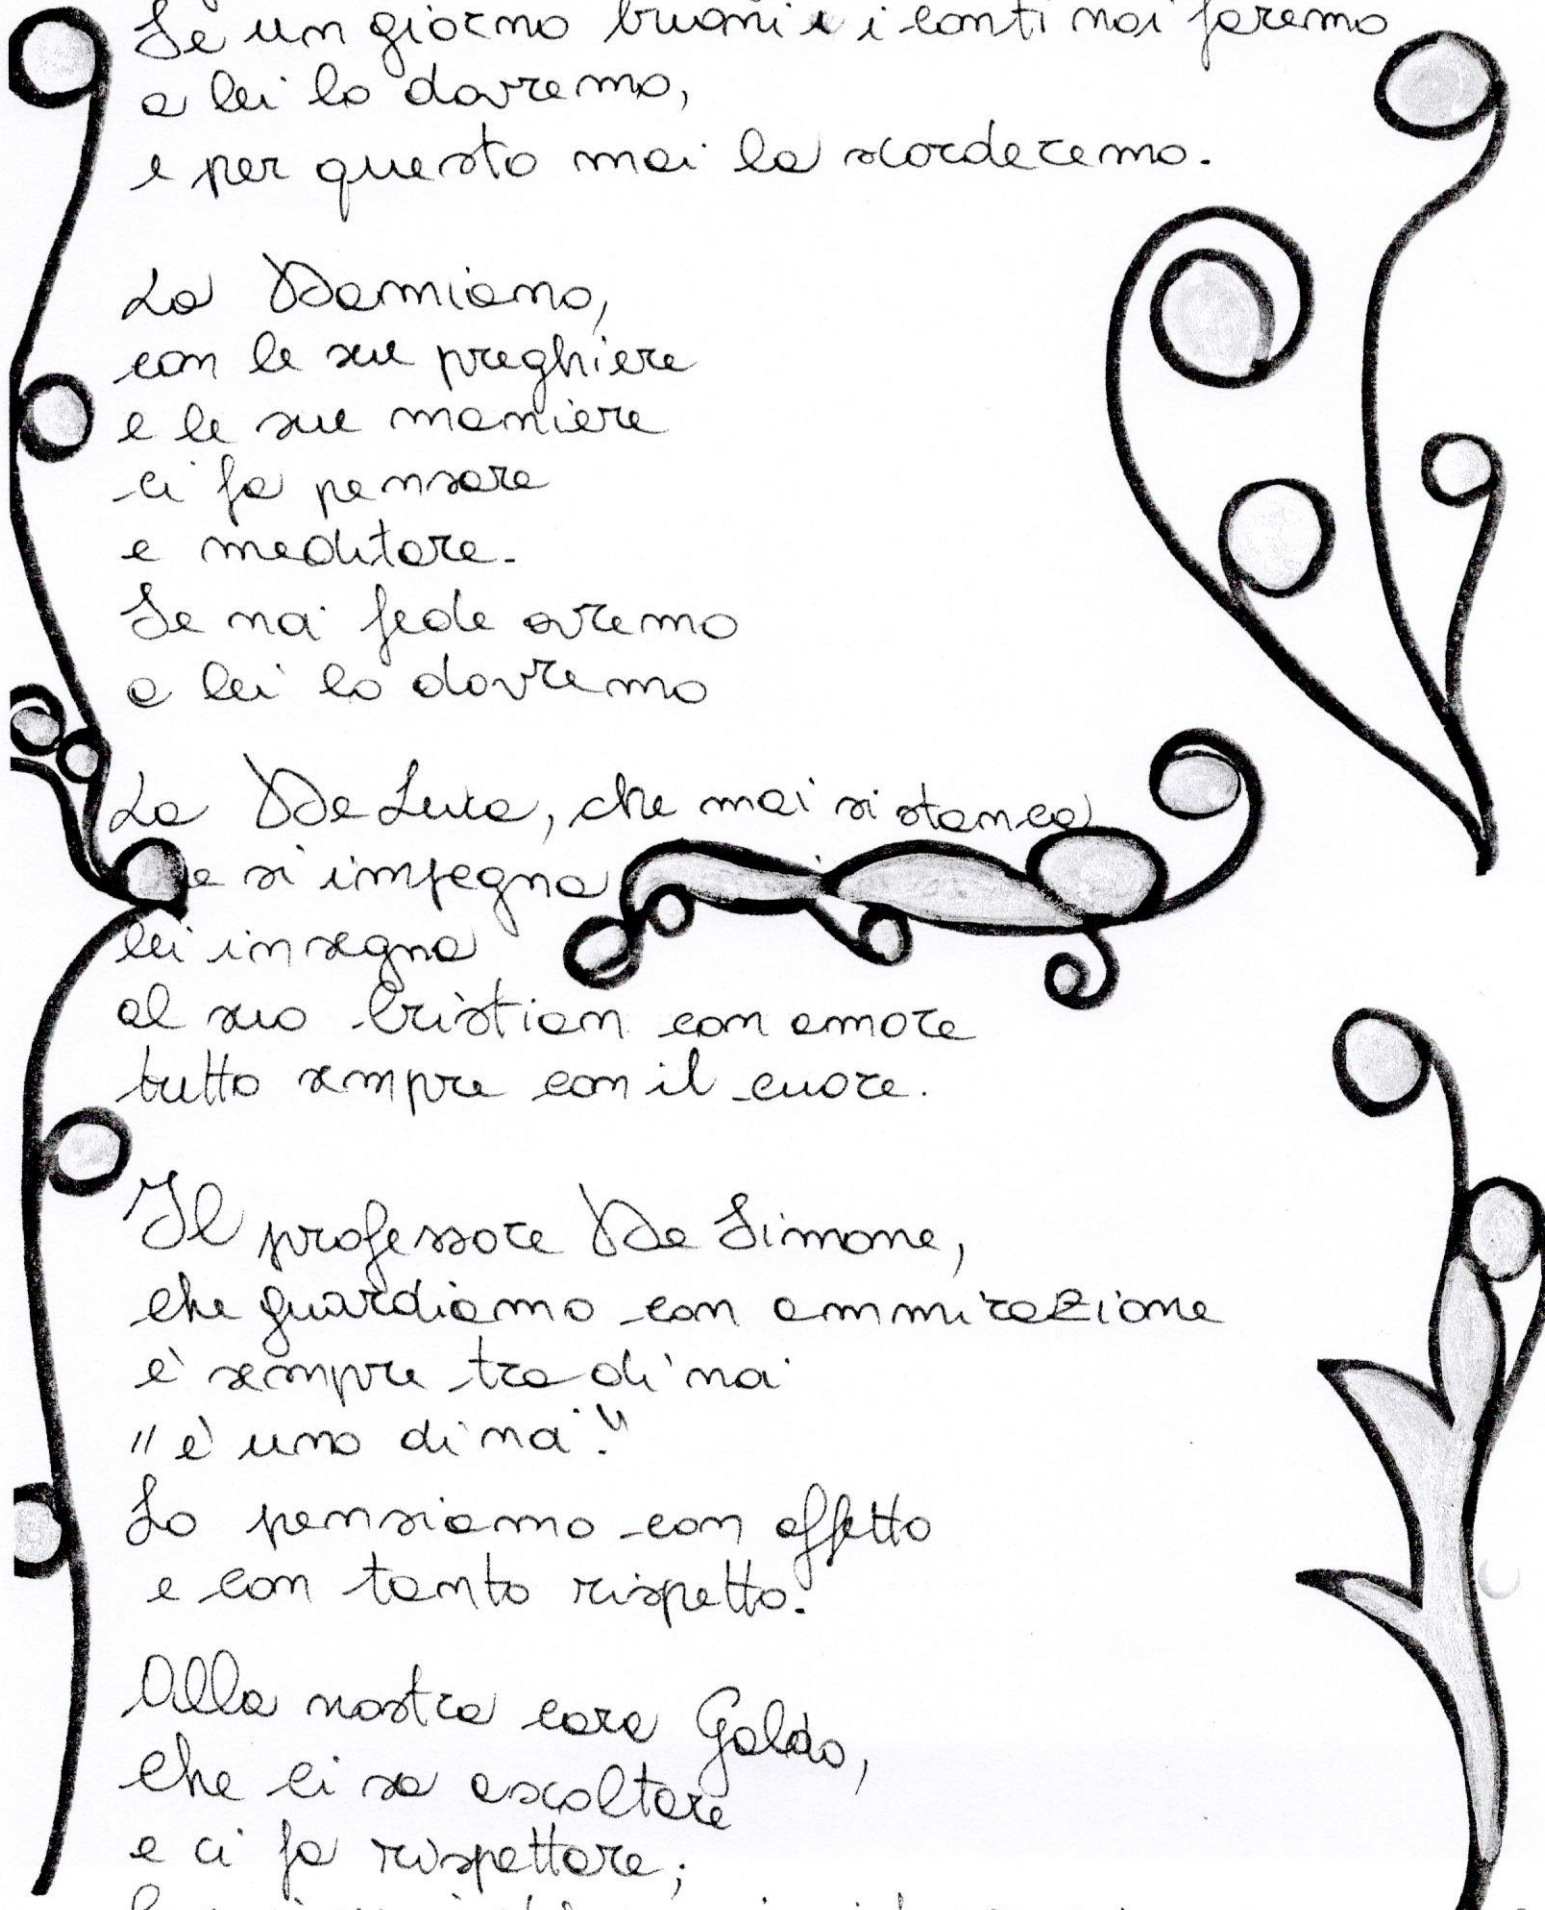 Se un giorno buoni i conti noi faremo
a lei lo dovremo,
e per questo mai la scorderemo.
La Damiano,
con le sue preghiere
e le sue maniere
ci fa pensare
e meditare.
Se noi fede avremo
a lei lo dovremo
La De Luca, che mai si stanca
e si impegna
lei insegna
al suo Cristian con amore
tutto sempre con il cuore.
Il professore De Simone,
che guardiamo con ammirazione
è sempre tra di noi
"è uno di noi."
Lo pensiamo con affetto
e con tanto rispetto.
Alla nostra cara Galdo,
che ci sa ascoltare
e ci fa rispettare;